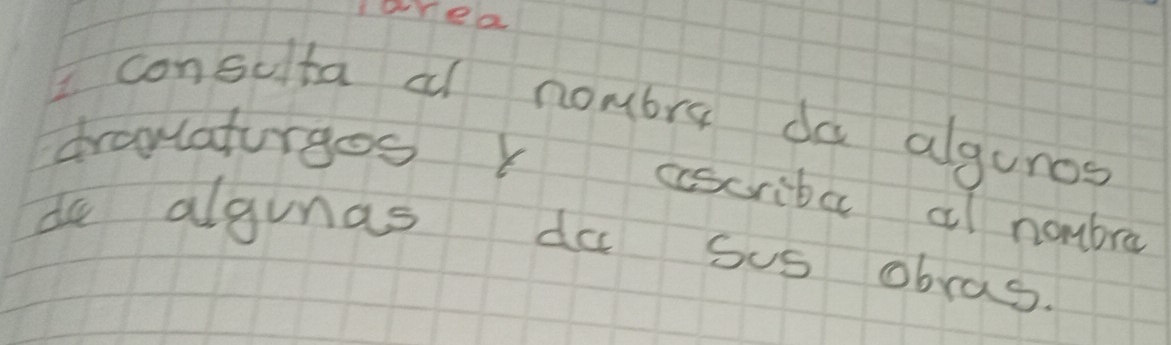 Tarea
1 consulta el nombre de algunos
dramaturgos y escribe el nombre
de algunas de sus obras.